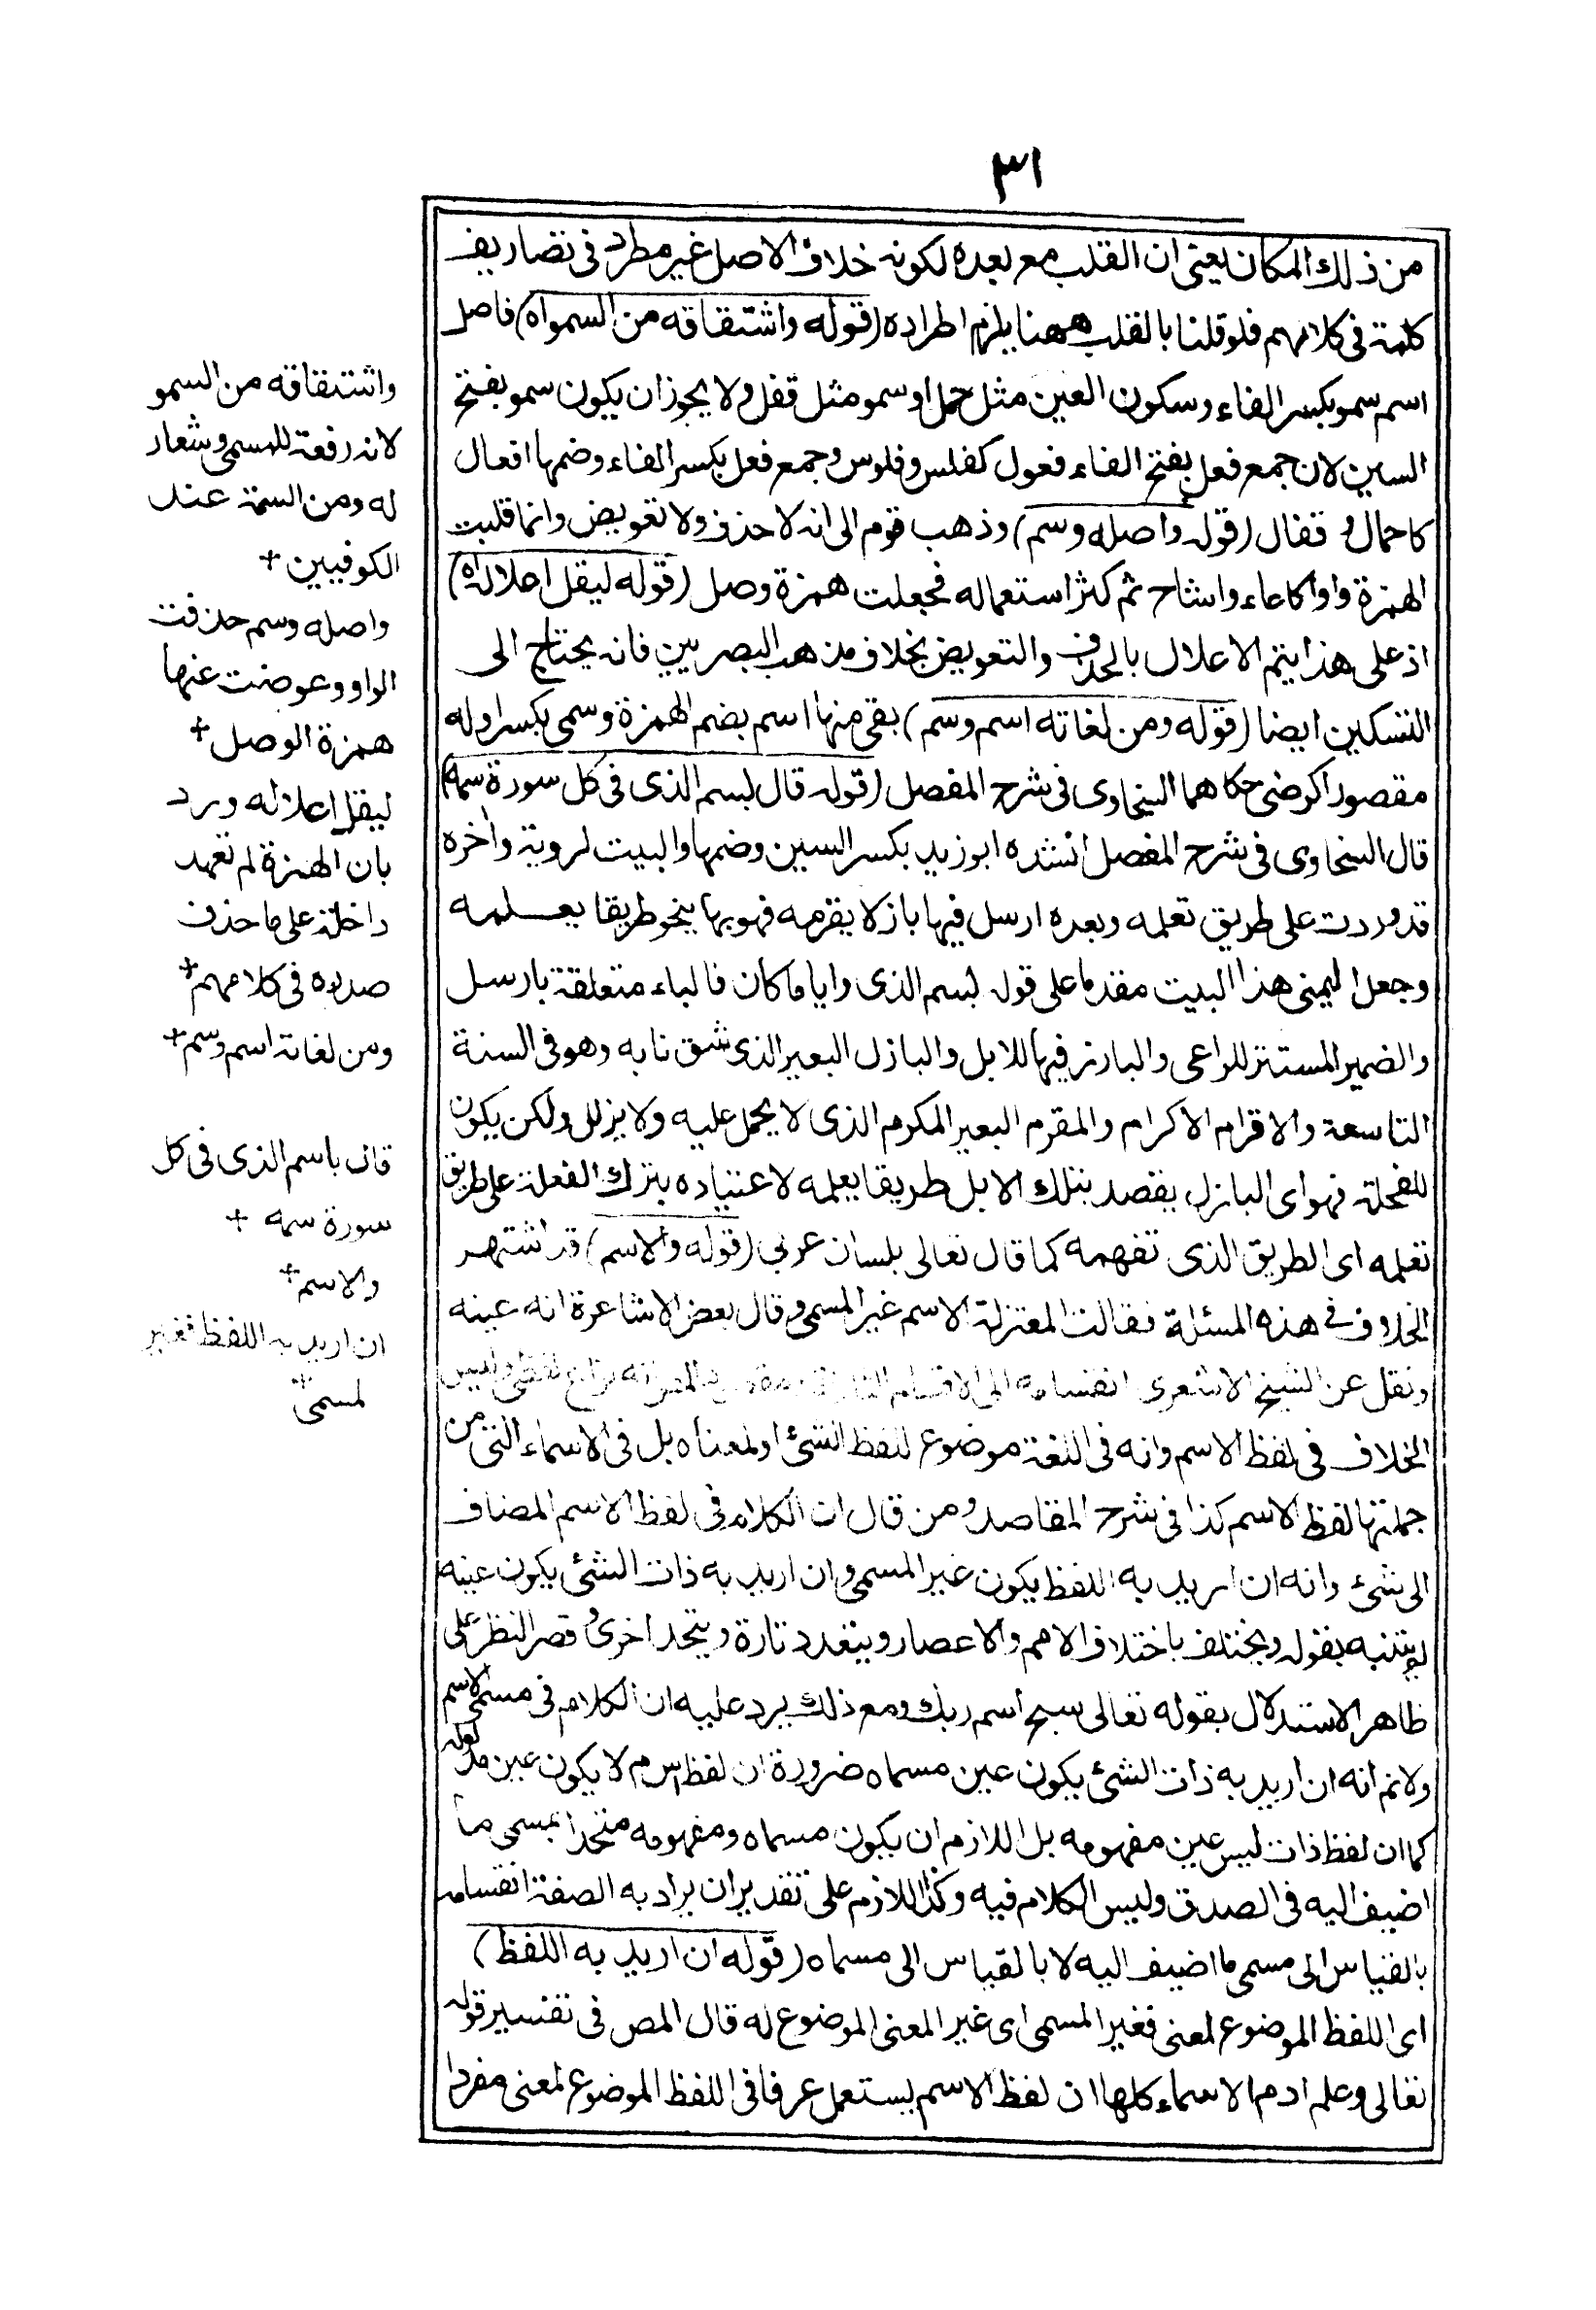 ٣١
من ذلك المكان يعنى ان القلب مع بعده لكونه خلاف الاصل غير مطرد فى تصاريف
كلمة فى كلامهم فلو قلنا بالقلب ههنا يلزم اطراده (قوله واشتقاقه من السمواه) فاصل
اسم سمو بكسر الفاء وسكون العين مثل حمل او سمو مثل قفل ولا يجوز ان يكون سمو بفتح
السين لان جمع فعل بفتح الفاء فعول كفلس وفلوس وجمع فعل بكسر الفاء وضمها افعال
كاحمال و قفال (قوله واصله وسم) وذهب قوم الى انه لا حذف ولا تعويض وانما قلبت
الهمزة واوا كاعاء واشاح ثم كثر استعماله فجعلت همزة وصل (قوله ليقل اعلاله اه)
اذ على هذا يتم الاعلال بالحذف والتعويض بخلاف مذهب البصريين فانه يحتاج الى
التسكين ايضا (قوله ومن لغاته اسم وسم) بقى منها اسم بضم الهمزة وسمى بكسر اوله
مقصورا كرضى حكاهما السخاوى فى شرح المفصل (قوله قال بسم الذى فى كل سورة سمه)
قال السخاوى فى شرح المفصل انشده ابوزيد بكسر السين وضمها والبيت لروبة واخره
قد وردت على طريق تعلمه وبعده ارسل فيها بازلا يقرمه فهو بها ينحو طريقا يعلمه
وجعل اليمنى هذا البيت مقدما على قوله بسم الذى وايا ما كان فالباء متعلقة بارسل
والضمير المستتر للراعى والبارز فيها للابل والبازل البعير الذى شق نابه وهو فى السنة
التاسعة والاقرام الاكرام والمقرم البعير المكرم الذى لا يحمل عليه ولا يزلل ولكن يكون
للفحلة فهو اى البازل يقصد بتلك الابل طريقا يعلمه لاعتياده بترك الفعلة على طريق
تعلمه اى الطريق الذى تفهمه كما قال تعالى بلسان عربى (قوله والاسم) قد اشتهر
الخلاف فى هذه المسئلة فقالت المعتزلة الاسم غير المسمى وقال بعض الاشاعرة انه عينه
ونقل عن الشيخ الاشعرى انقسامه الى الاقسام الثلاثة لفظى وليس
الخلاف فى لفظ الاسم وانه فى اللغة موضوع للفظ الشئ او لمعناه بل فى الاسماء التى من
جملتها لفظ الاسم كذا فى شرح المقاصد ومن قال ان الكلام فى لفظ الاسم المضاف
الى شئ وانه ان اريد به اللفظ يكون غير المسمى وان اريد به ذات الشئ يكون عينه
لم يتنبه بقوله ويختلف باختلاف الامم والاعصار ويتعدد تارة ويتحد اخرى و قصر النظر على
ظاهر الاستدلال بقوله تعالى سبح اسم ربك ومع ذلك يرد عليه ان الكلام فى مسمى الاسم
ولا نم انه ان اريد به ذات الشئ يكون عين مسماه ضرورة ان لفظ اس م لا يكون عين مدلوله
كما ان لفظ ذات ليس عين مفهومه بل اللازم ان يكون مسماه ومفهومه متحدا بمسمى ما
اضيف اليه فى الصدق وليس الكلام فيه وكذا اللازم على تقدير ان يراد به الصفة انقسامه
بالقياس الى مسمى ما اضيف اليه لا بالقياس الى مسماه (قوله ان اريد به اللفظ)
اى اللفظ الموضوع لمعنى فغير المسمى اى غير المعنى الموضوع له قال المص فى تفسير قوله
تعالى وعلم ادم الاسماء كلها ان لفظ الاسم يستعمل عرفا فى اللفظ الموضوع لمعنى مفردا
واشتقاقه من السمو
لانه رفعة للمسمى وشعار
له ومن السمة عند
الكوفيين +
واصله وسم حذفت
الواو وعوضت عنها
همزة الوصل +
ليقل اعلاله ورد
بان الهمزة لم تعهد
داخلة على ما حذف
صدره فى كلامهم +
ومن لغاته اسم وسم +
قال باسم الذى فى كل
سورة سمه +
والاسم +
ان اريد به اللفظ فغير
لمسمى +